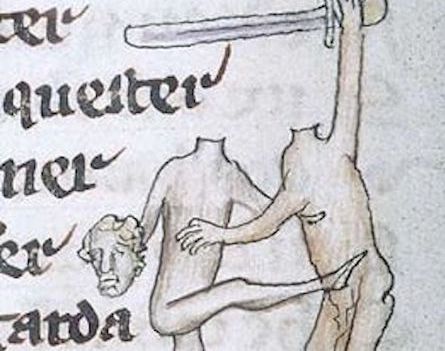 ter
quester
ner
er
arda